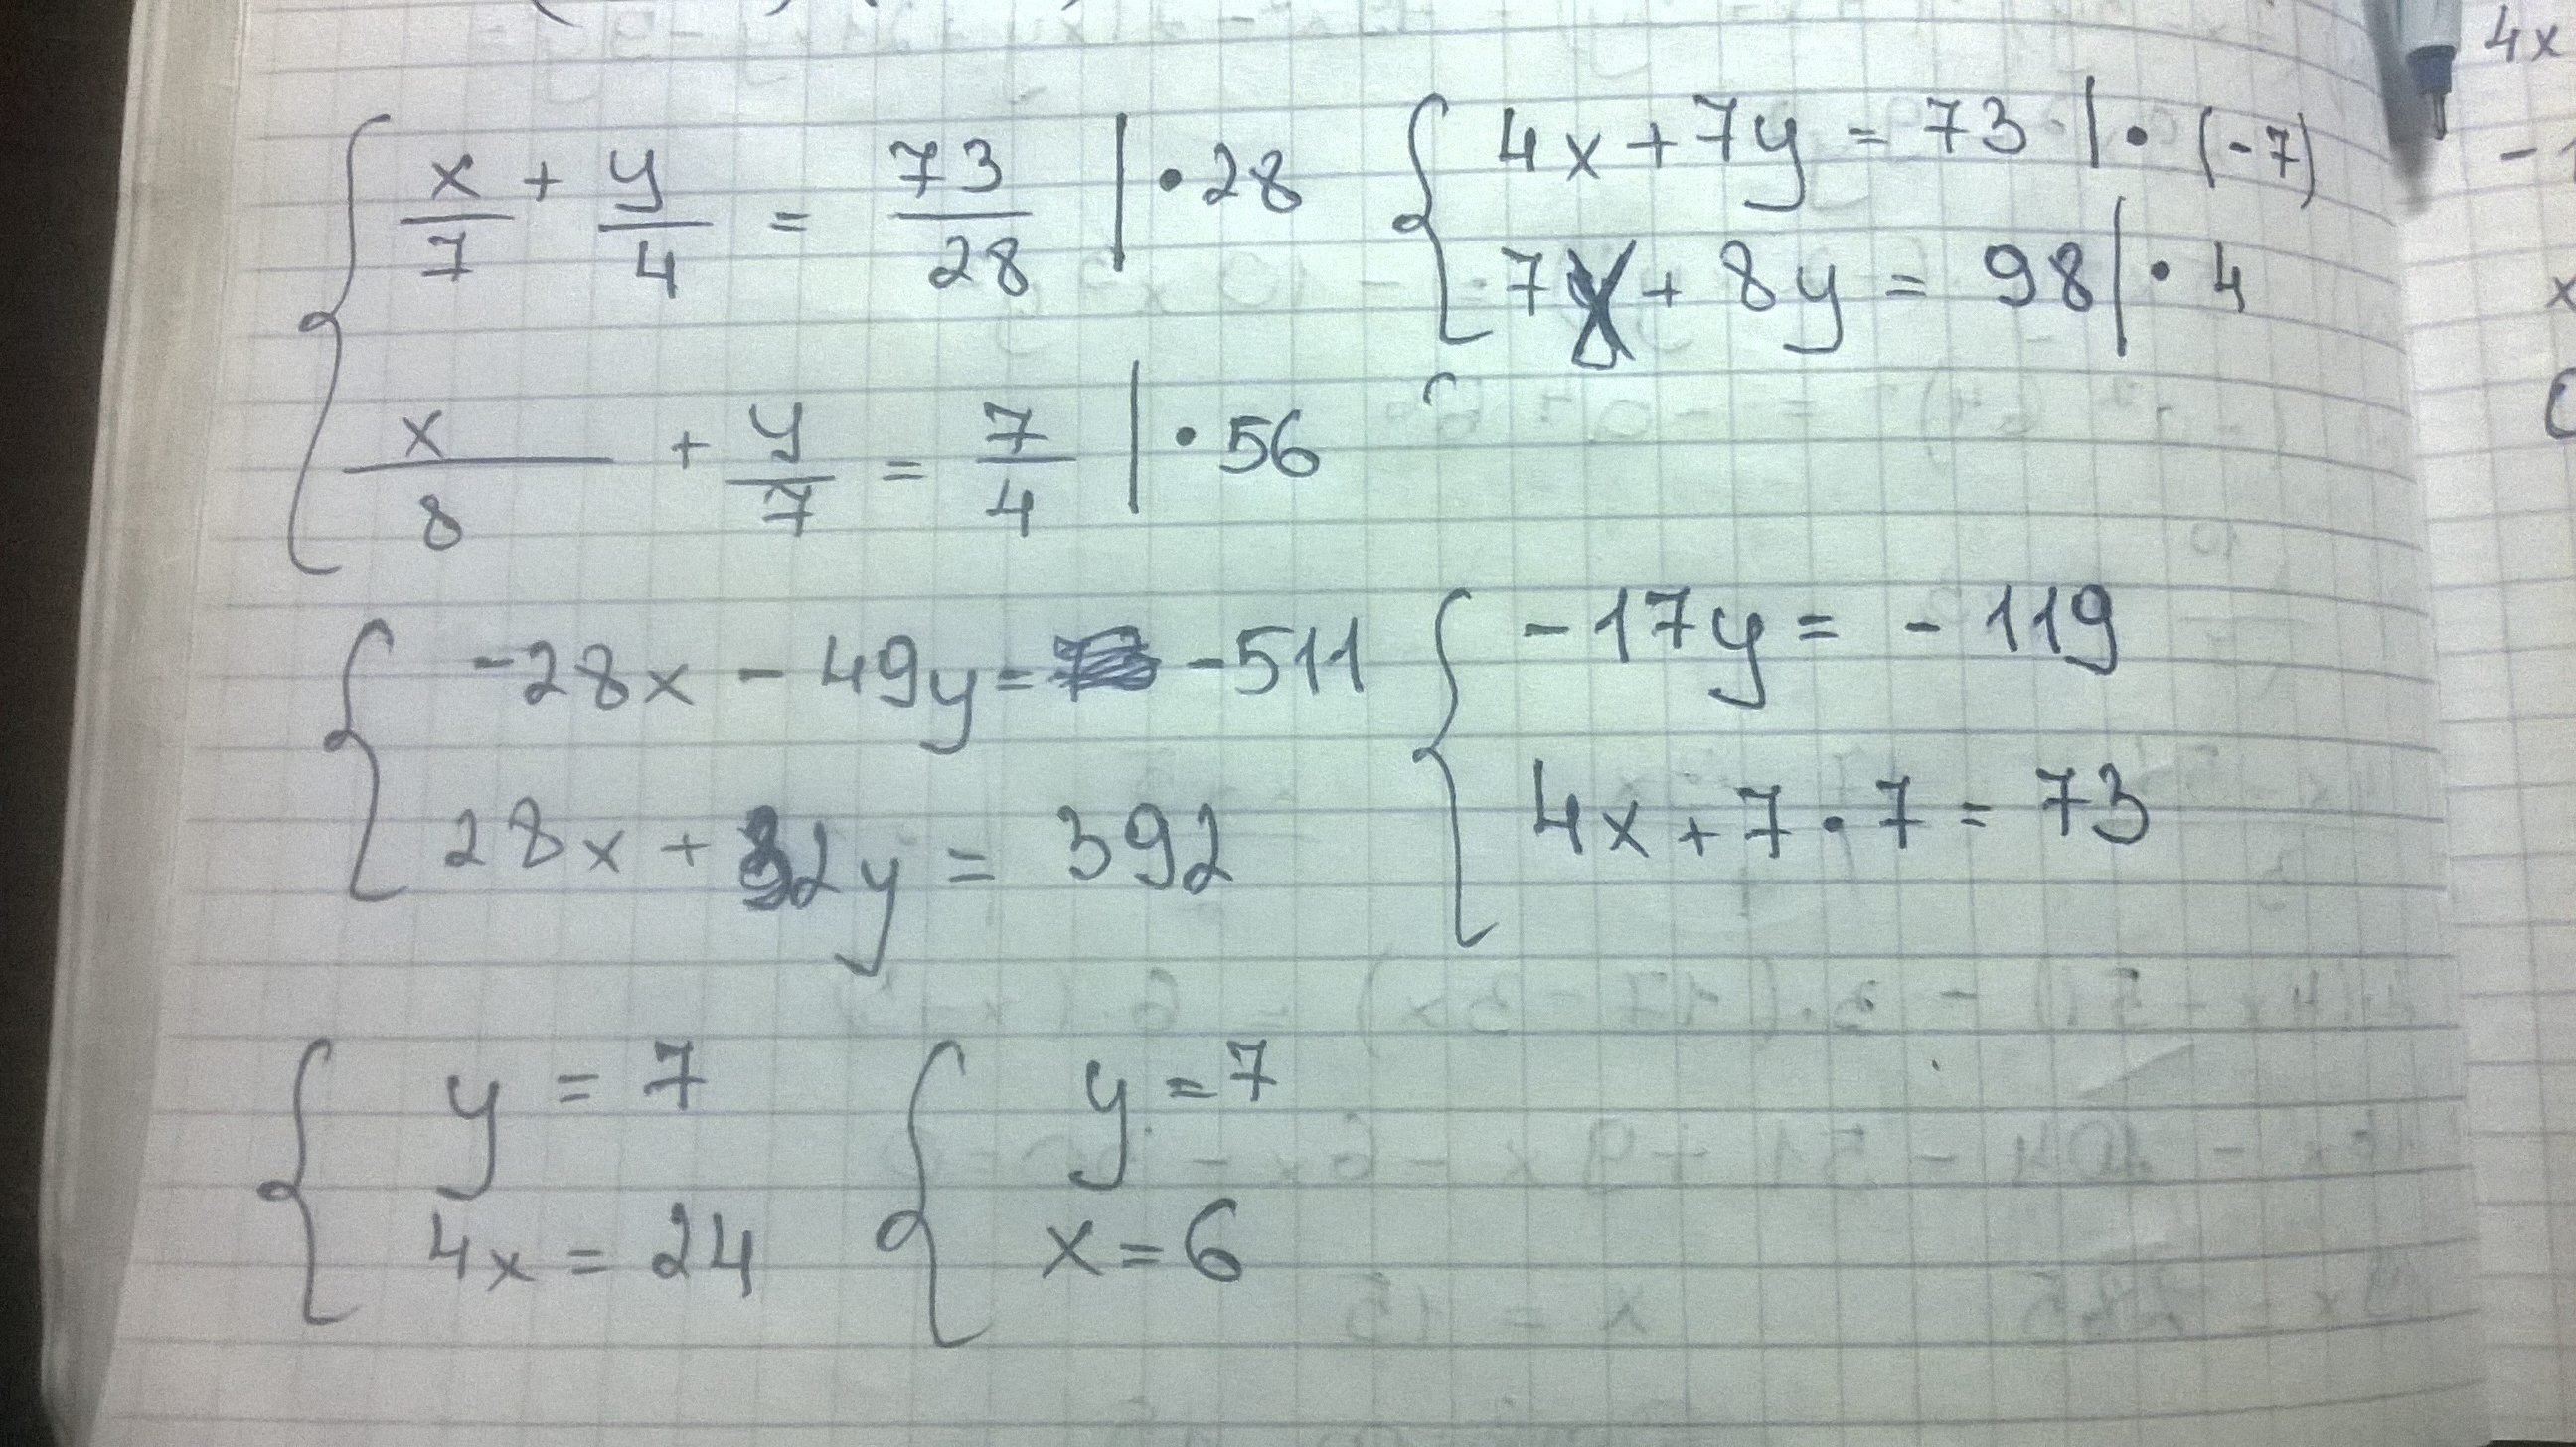 x/7 + y/4 = 73/28 | • 28
x/8 + y/7 = 7/4 | • 56
4x + 7y = 73 | • (-7)
7x + 8y = 98 | • 4
-28x - 49y = -511
28x + 32y = 392
-17y = -119
4x + 7 • 7 = 73
y = 7
4x = 24
y = 7
x = 6
4x